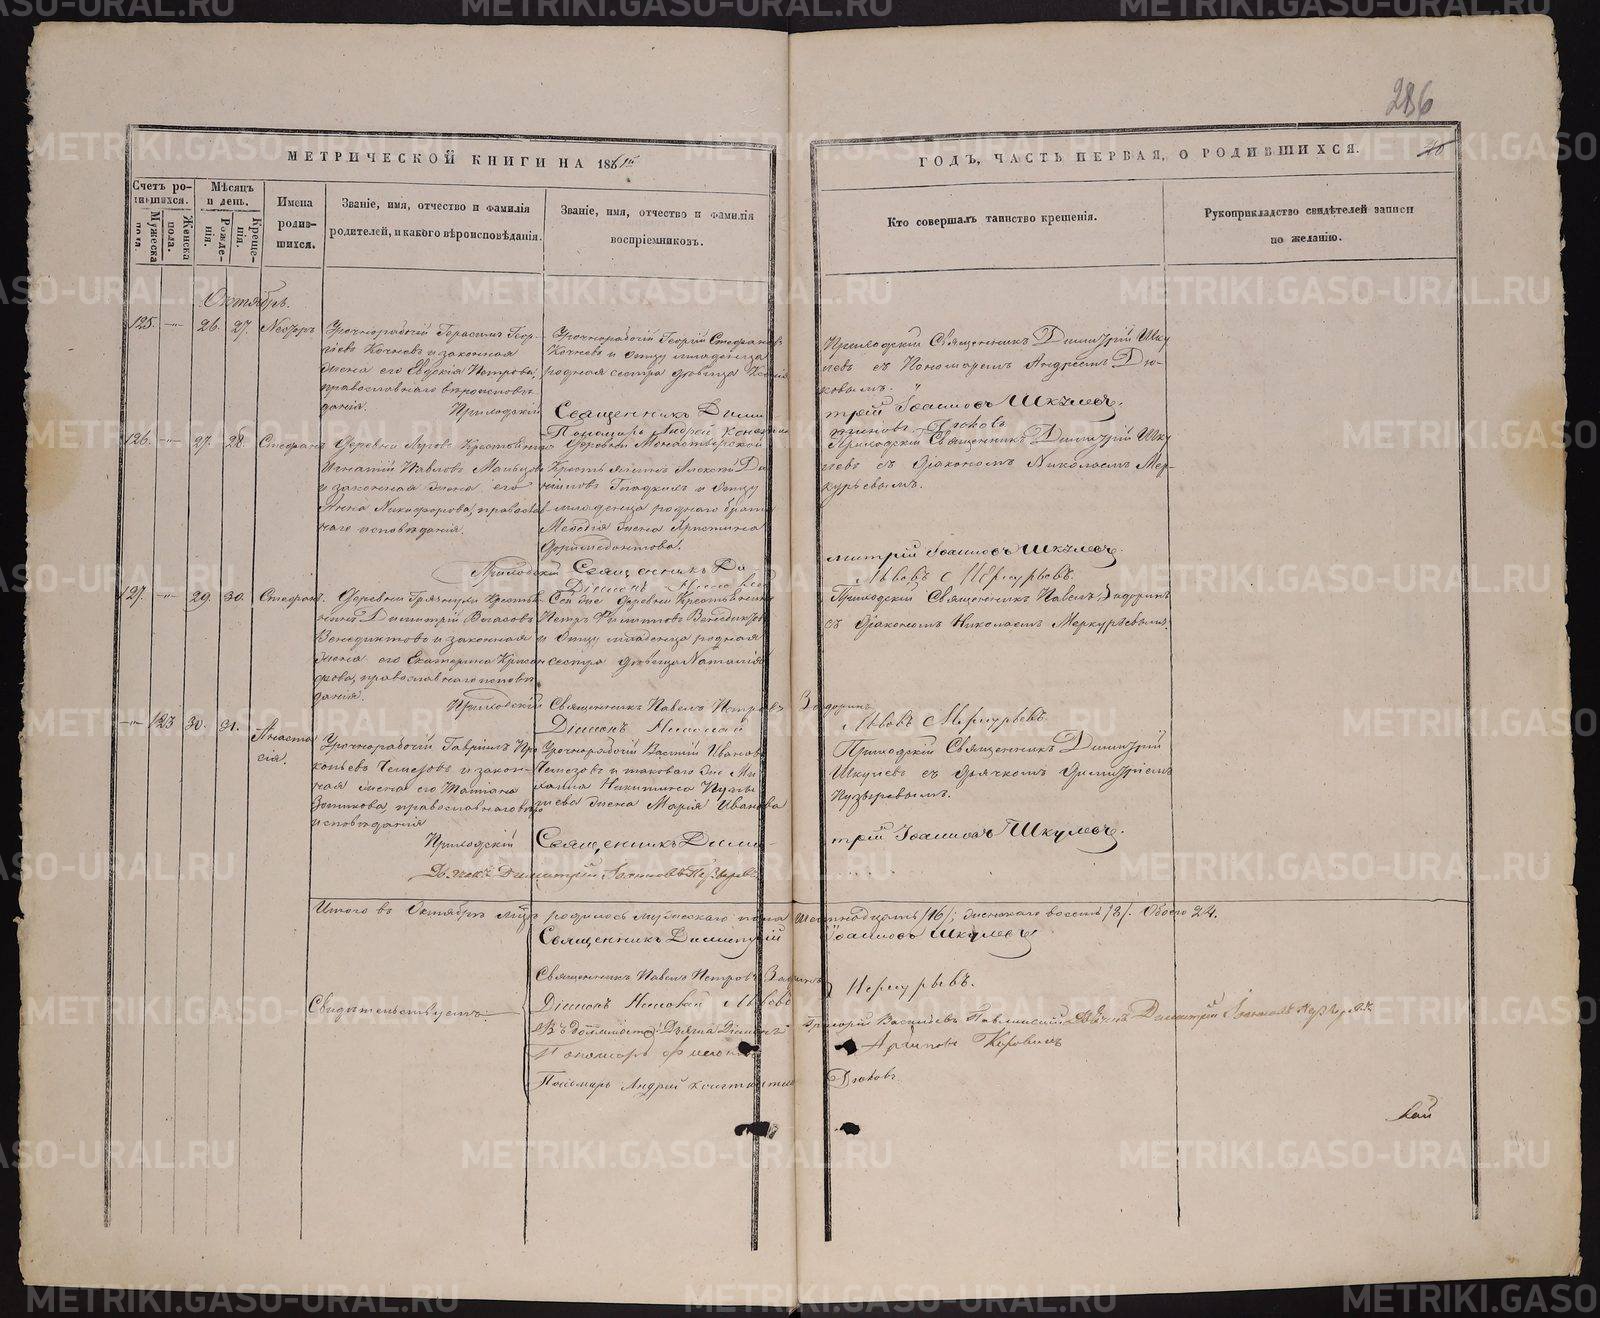 286
МЕТРИЧЕСКОЙ КНИГИ НА 1861й
ГОДЪ, ЧАСТЬ ПЕРВАЯ, О РОДИВШИХСЯ.
Счетъ родившихся.
Мужеска пола.
Женска пола.
Мѣсяцъ и день.
Рожденія.
Крещенія.
Имена родившихся.
Званіе, имя, отчество и фамилія
родителей, и какого вѣроисповѣданія.
Званіе, имя, отчество и фамилія
воспріемниковъ.
Кто совершалъ таинство крещенія.
Рукоприкладство свидѣтелей записи
по желанію.
Октябрь.
125. —„— 26. 27.
Урочнорабочій Герасимъ Геор-
гіевъ Кочневъ и законная
жена его Евдокія Петрова,
православнаго вѣроисповѣ-
данія.
Урочнорабочій Георгій Стефановъ
Кочневъ и отцу младенца
родная сестра дѣвица
Приходскій Священникъ Димитрій Шку
левъ съ Пономаремъ Андреемъ Дю-
ковымъ.
Приходскій Священникъ Дими
трій Іоанновъ Шкулевъ.
Пономарь Андрей Констан
тиновъ Дюковъ
126. —„— 27. 28. Стефанъ
Деревни Крестьянинъ
Игнатій Павловъ
и законная жена его
Анна Никифорова, православ
наго исповѣданія.
Деревни Монастырской
Крестьянинъ Алексѣй Да
ниловъ Гладкихъ и отцу
младенца роднаго брата
Меѳодія жена Христина
Приходскій Священникъ Димитрій Шку
левъ съ Діакономъ Николаемъ Мер-
курьевымъ.
Приходскій Священникъ Ди
митрій Іоанновъ Шкулевъ.
Діаконъ Николай
Львовъ Меркурьевъ.
127. —„— 29. 30. Стефанъ.
Деревни Грязнухи Крестья
нинъ Димитрій Власовъ
Венедиктовъ и законная
жена его Екатерина Крисан
фова, православнаго исповѣ
данія.
Сей же деревни Крестьянинъ
Петръ Филиповъ Венедиктовъ
и отцу младенца родная
сестра дѣвица Наталія
Приходскій Священникъ Павелъ Задоринъ
съ Діакономъ Николаемъ Меркурьевымъ.
Приходскій Священникъ Павелъ Петровъ Задоринъ
Діаконъ Николай
Львовъ Меркурьевъ.
—„— 123 30. 31. Анаста
сія.
Урочнорабочій Гавріилъ Про
копьевъ Чемезовъ и закон-
ная жена его Татьяна
Зотикова, православнаго вѣро
исповѣданія
Урочнорабочій Василій Ивановъ
Чемезовъ и таковаго же Ми
хаила Никитина
жена Марія Иванова
Приходскій Священникъ Димитрій
Шкулевъ съ дьячкомъ Димитріемъ
Пузыревымъ.
Приходскій Священникъ Дими-
трій Іоанновъ Шкулевъ.
Дьячекъ Димитрій Іоанновъ Пузыревъ
Итого въ Октябрѣ мѣсяцѣ родилось мужескаго пола шестнадцать /16/; женскаго восемь /8/. Обоего 24.
Священникъ Димитрій Іоанновъ Шкулевъ
Священникъ Павелъ Петровъ Задоринъ
Свидѣтельствуемъ
Діаконъ Николай Львовъ Меркурьевъ.
Григорій Васильевъ Дьячекъ Димитрій Іоанновъ Пузыревъ
Пономарь
Пономарь Андрей Константиновъ Дюковъ
METRIKI.GASO-URAL.RU